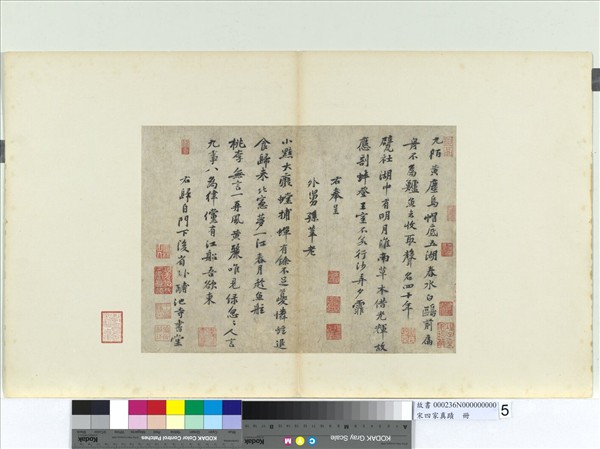 九陌黃塵烏帽底五湖春水白鷗前扁
舟不為鱸魚去收取聲名四十年
甓社湖中有明月淮南草木借光輝故
應剖蚌登王室不若行沙弄夕霏
右奉呈
外舅孫莘老
小黠大癡螳捕蟬有餘不足夔憐蚿退
食歸來北窻夢一江春月趁魚船
桃李無言一再風黃鸝唯見綠怱〻人言
九事八為律儻有江船吾欲東
右歸自門下後省臥酺池寺書堂
故書 000236N000000000
宋四家真蹟 冊
5
KODAK Color Control Patches
KODAK Gray Scale
C Y M